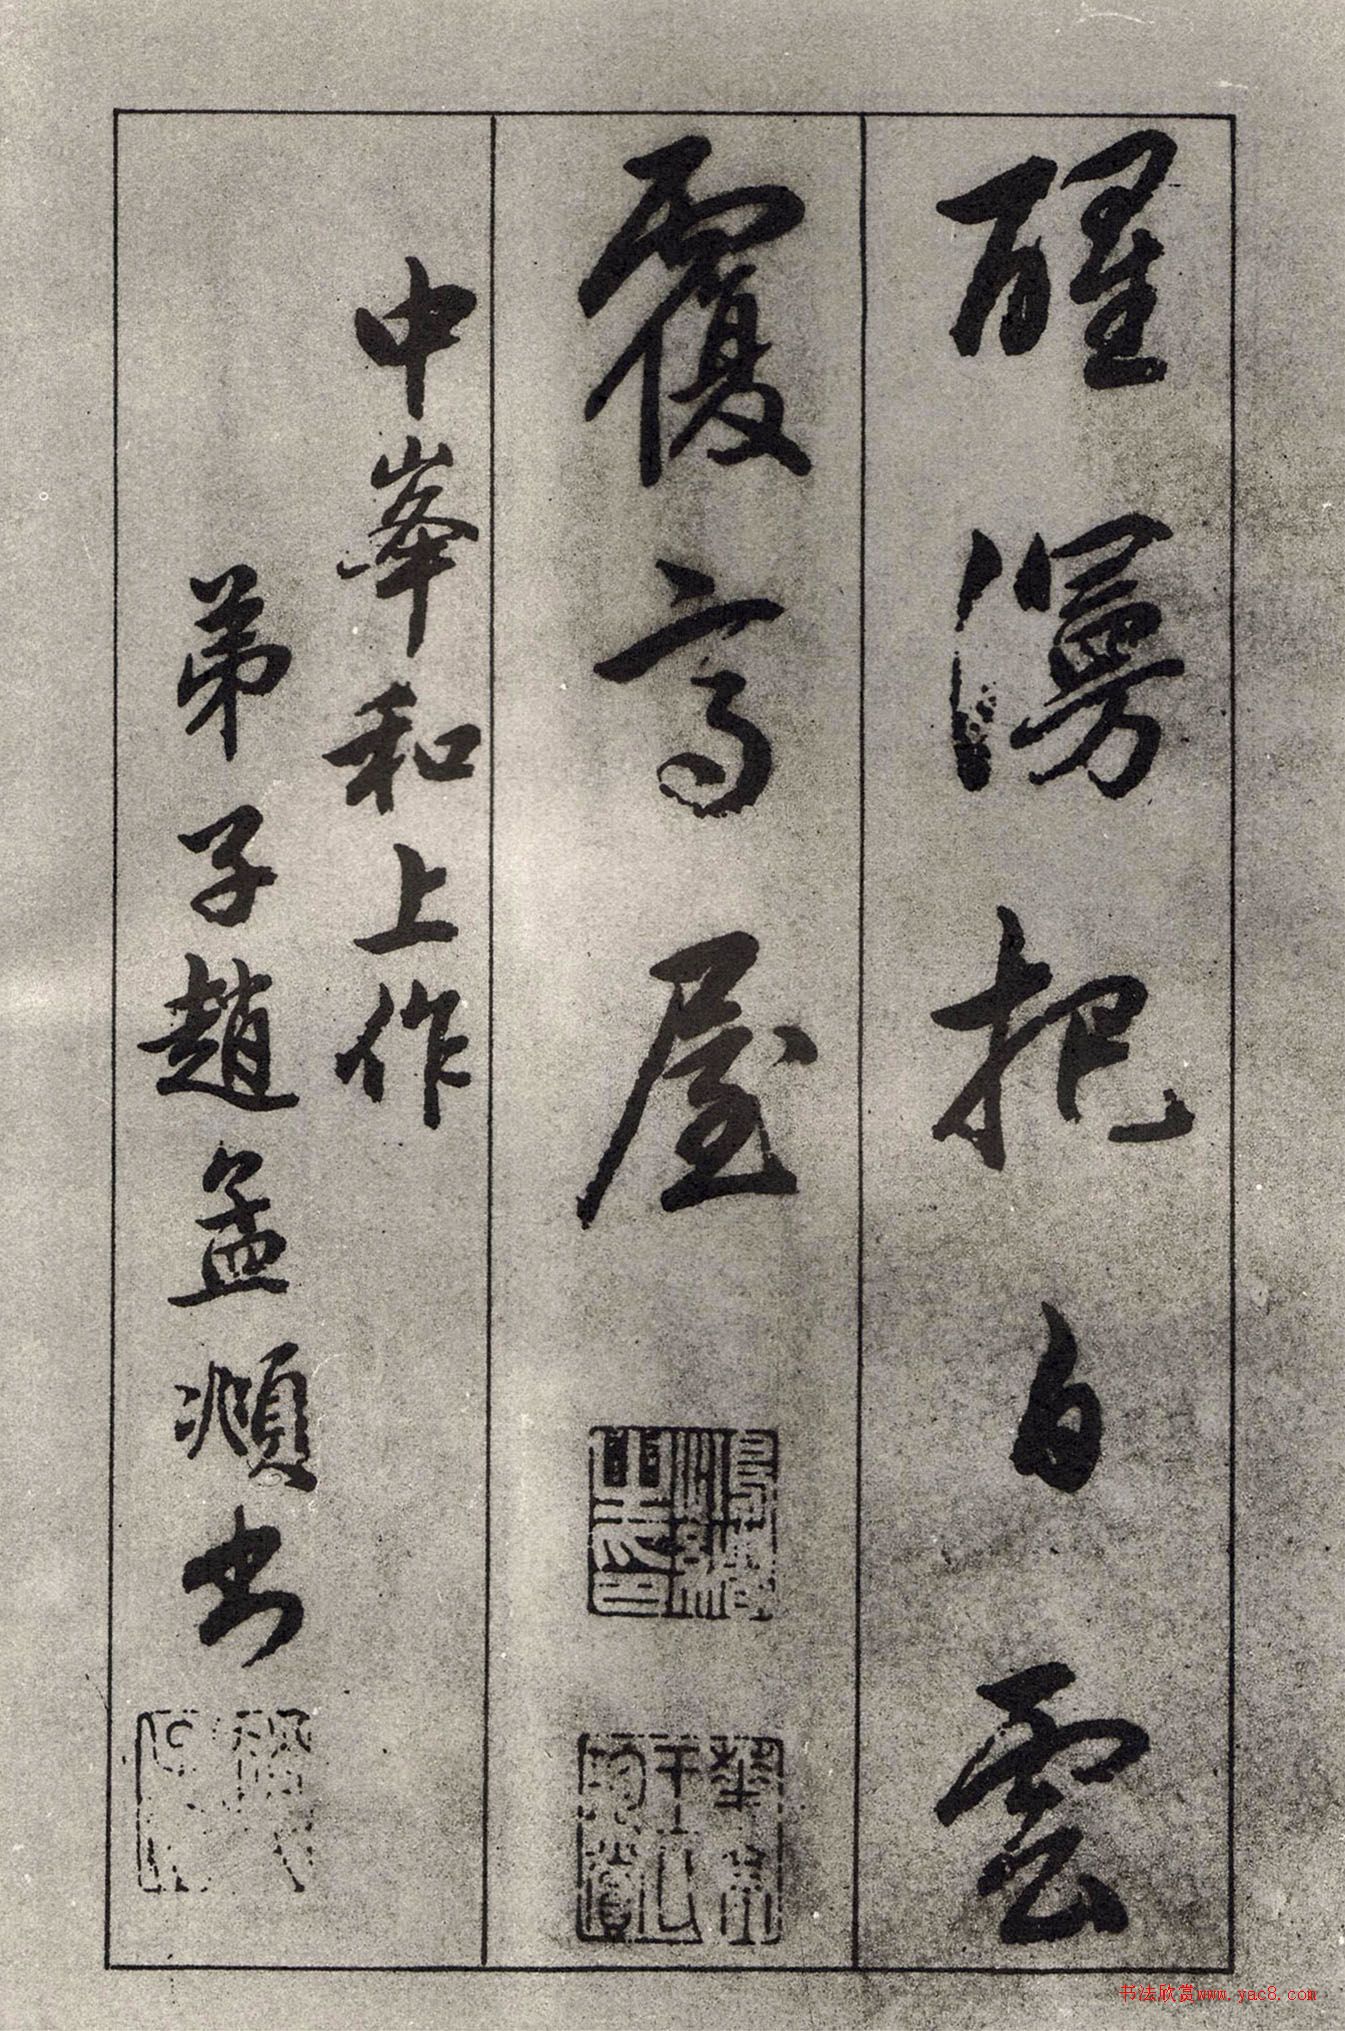 醒漫把白雲
覆高屋
中峯和上作
弟子趙孟頫書
书法欣赏www.yac8.com